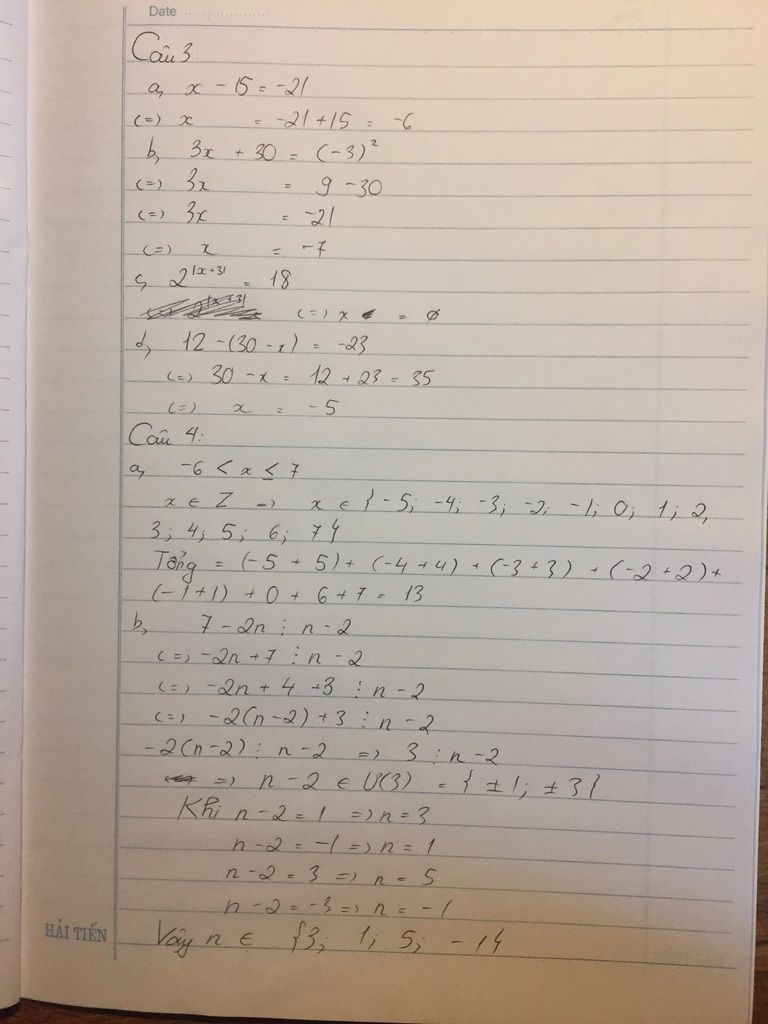 Date
Câu 3:
a, x - 15 = -21
(=) x = -21 + 15 = -6
b, 3x + 30 = (-3)²
(=) 3x = 9 - 30
(=) 3x = -21
(=) x = -7
c, 2^|x+3| = 18
(=) x = ∅
d, 12 - (30 - x) = -23
(=) 30 - x = 12 + 23 = 35
(=) x = -5
Câu 4:
a, -6 < x ≤ 7
x ∈ Z => x ∈ { -5; -4; -3; -2; -1; 0; 1; 2;
3; 4; 5; 6; 7 }
Tổng = (-5 + 5) + (-4 + 4) + (-3 + 3) + (-2 + 2) +
(-1 + 1) + 0 + 6 + 7 = 13
b, 7 - 2n ⋮ n - 2
(=) -2n + 7 ⋮ n - 2
(=) -2n + 4 + 3 ⋮ n - 2
(=) -2(n - 2) + 3 ⋮ n - 2
-2(n - 2) ⋮ n - 2 => 3 ⋮ n - 2
=> n - 2 ∈ Ư(3) = { ±1; ±3 }
Khi n - 2 = 1 => n = 3
n - 2 = -1 => n = 1
n - 2 = 3 => n = 5
n - 2 = -3 => n = -1
Vậy n ∈ {3; 1; 5; -1}
HẢI TIẾN